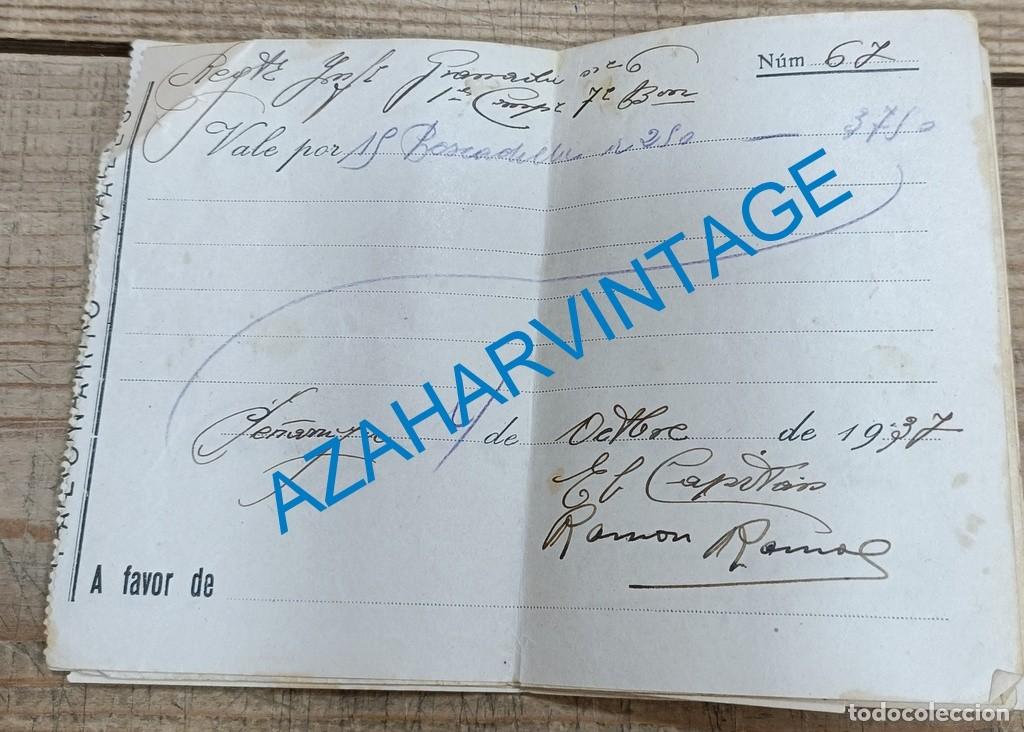 Regtº Infª Granada nº 6
1ª Compª 7º Bon
Núm 67
Vale por 15 Pescadilla a 250 — 3750
de Octbre de 1937
El Capitán
Ramon Ramos
A favor de
TALONARIO VALES
AZAHARVINTAGE
todocoleccion